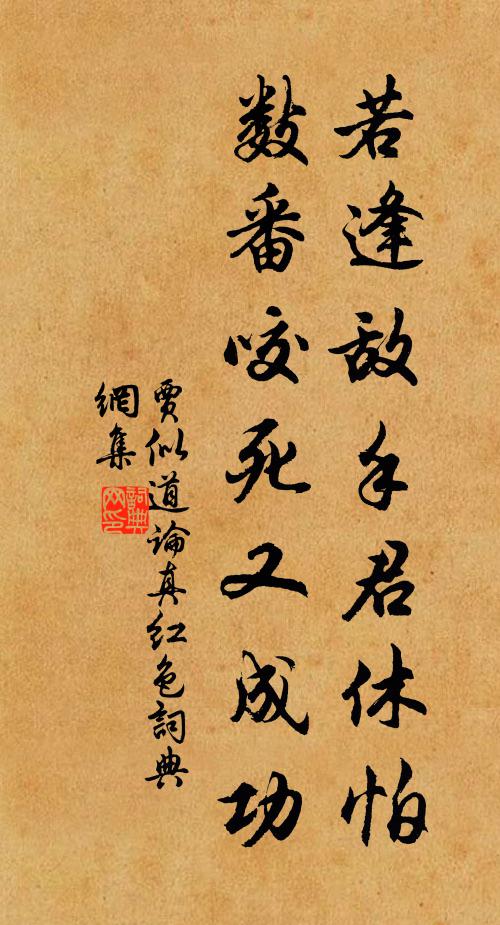 若逢敌手君休怕
数番咬死又成功
賈似道論真红色詞典
網集
詞典
网印